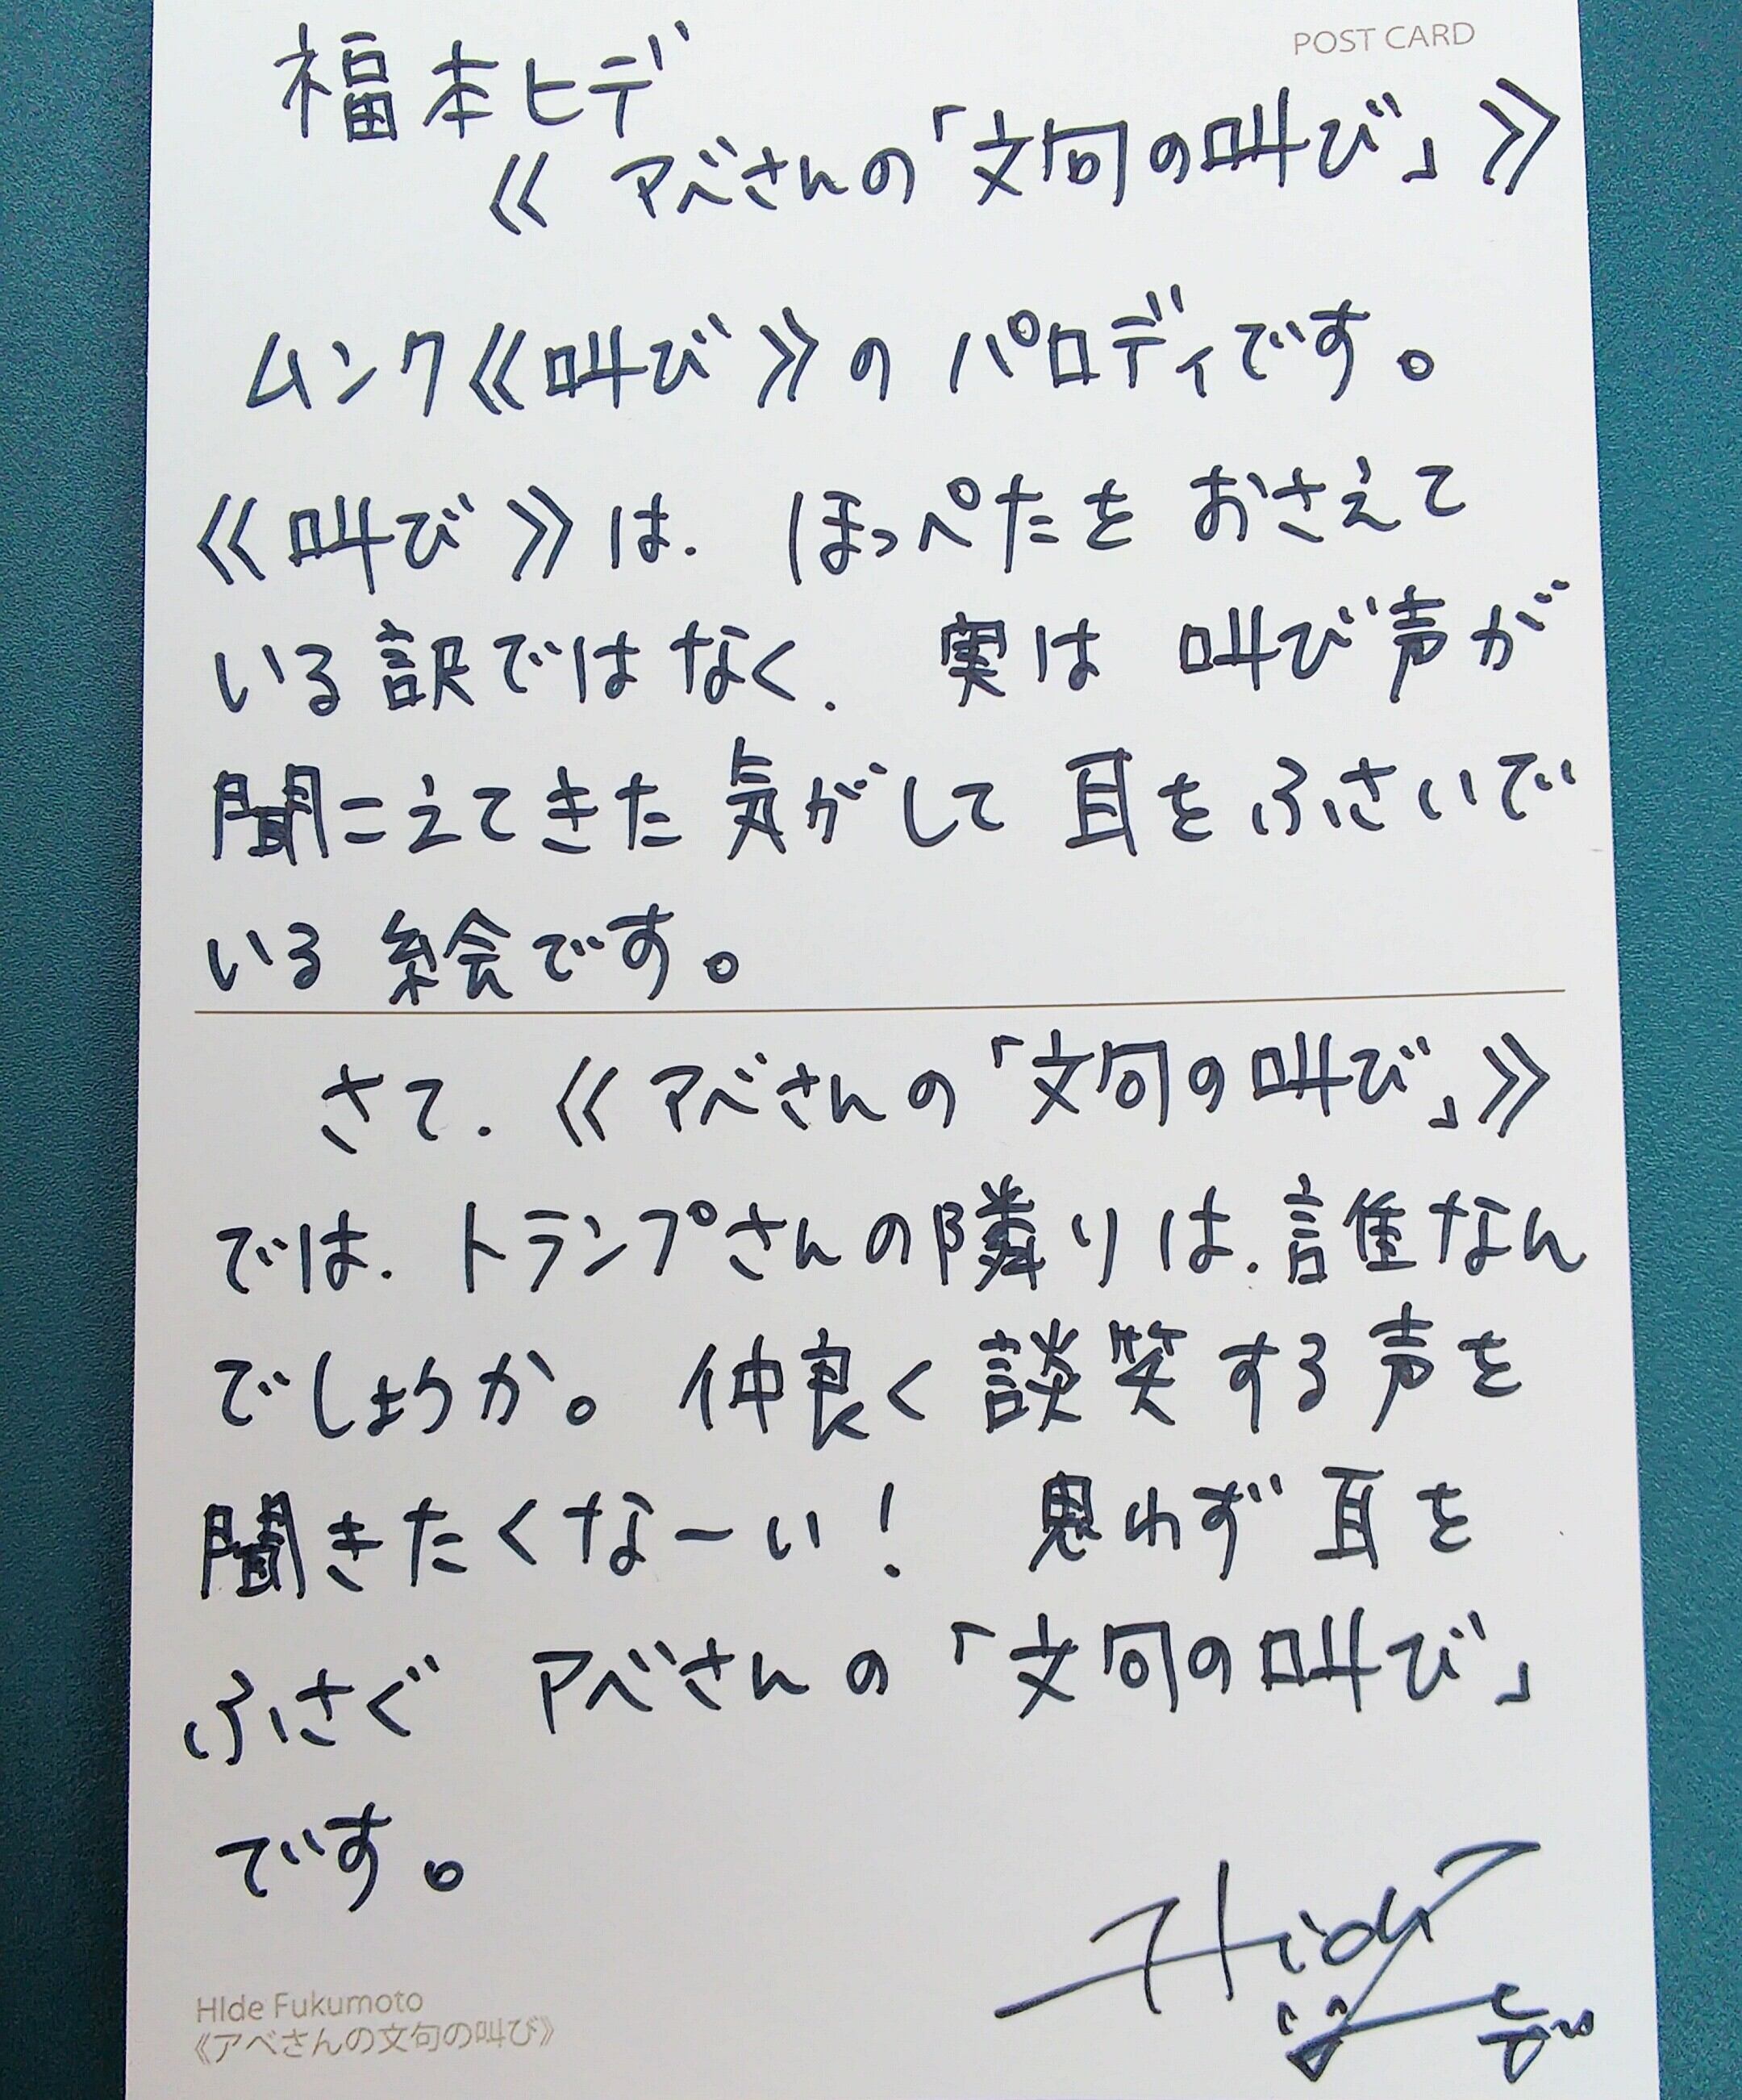 POST CARD
福本ヒデ
《アベさんの「文句の叫び」》
ムンク《叫び》のパロディです。
《叫び》は、ほっぺたをおさえて
いる訳ではなく、実は叫び声が
聞こえてきた気がして耳をふさいで
いる絵です。
さて、《アベさんの「文句の叫び」》
では、トランプさんの隣りは、誰なん
でしょうか。仲良く談笑する声を
聞きたくなーい！ 思わず耳を
ふさぐ アベさんの「文句の叫び」
です。
Hide
HIde Fukumoto
《アベさんの文句の叫び》